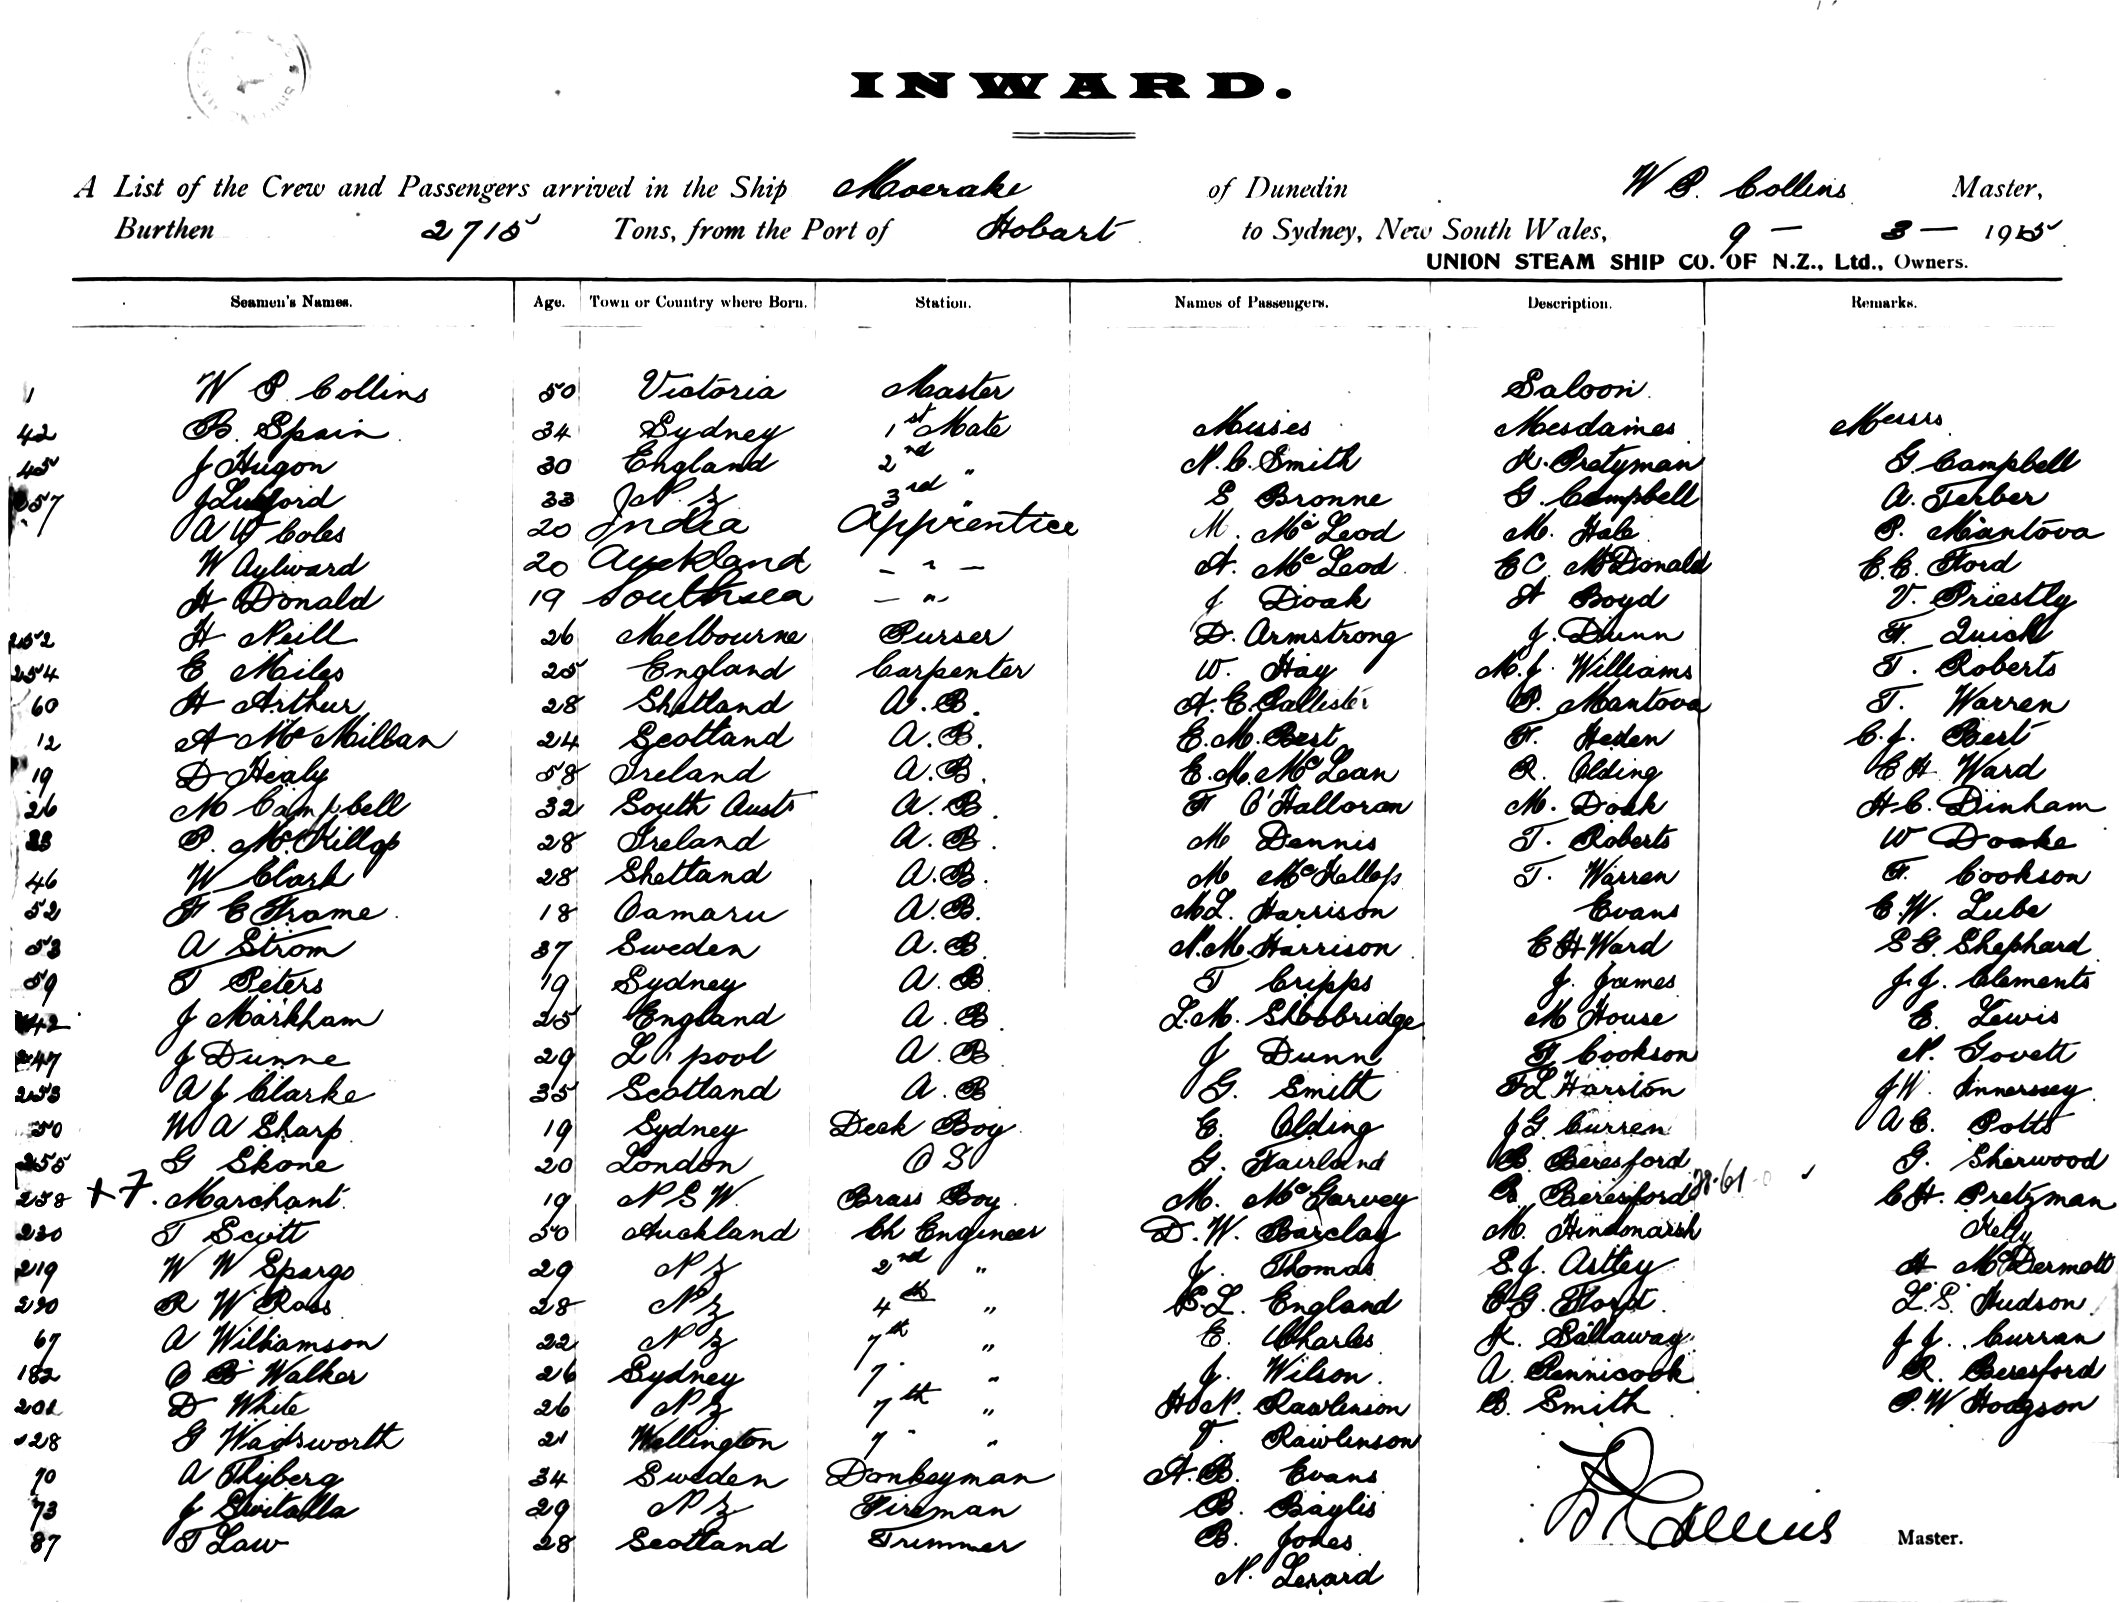 INWARD.
A List of the Crew and Passengers arrived in the Ship Moerake of Dunedin W P. Collins Master,
Burthen 2715 Tons, from the Port of Hobart to Sydney, New South Wales, 9 - 3 - 1915
UNION STEAM SHIP CO. OF N.Z., Ltd., Owners.
Seamen's Names. Age. Town or Country where Born. Station. Names of Passengers. Description. Remarks.
1 W P Collins 50 Victoria Master Saloon
42 B. Spain 34 Sydney 1st Mate Misses Mesdaimes Messrs
45 J Hugon 30 England 2nd " N. C. Smith K. Pretyman G. Campbell
257 J Luxford 33 N Z 3rd " E Bronne G. Campbell A. Ferber
A W Coles 20 India Apprentice M. McLeod M. Hale P. Mantova
W Aylward 20 Auckland - " - A. McLeod E C McDonald E. C. Ford
H Donald 19 Southsea - " J Doak A Boyd V. Priestly
252 H Neill 26 Melbourne Purser D. Armstrong J. Dunn F. Quick
254 E Miles 25 England Carpenter W. Hay M. J. Williams T. Roberts
60 H Arthur 28 Shetland A. B. A. C. Pallister P. Mantova T. Warren
12 A McMillan 24 Scotland A. B. E. M. Best F. Heden C. J. Bert
19 D Healy 58 Ireland A. B. E. M. McLean R. Olding C H Ward
26 M Campbell 32 South Aust A. B. F O'Halloran M. Doak H C. Dinham
28 P. McKillop 28 Ireland A. B. M Dennis T. Roberts W Doake
46 W Clark 28 Shetland A. B. M McKellop T. Warren F. Cookson
52 F C Frame 18 Oamaru A. B. M L. Harrison Evans C. W. Lube
53 A Strom 37 Sweden A. B. N. M. Harrison C H Ward S G. Shephard
59 T Peters 19 Sydney A. B T Cripps J. James J. J. Clements
42 J Markham 25 England A. B. L. M. Shoobridge M House E. Lewis
247 J Dunne 29 L'pool A. B J Dunn F. Cookson N. Govett
253 A J Clarke 35 Scotland A. B G. Smith F L Harston J W. Innersey
50 W A Sharp 19 Sydney Deck Boy E. Olding J G. Curren A C. Potts
255 G Skone 20 London O S G. Fairland B. Beresford G. Sherwood
258 + F. Marchant 19 N S W. Brass Boy M. McGarvey R Beresford 28-61- C H. Pretyman
230 T Scott 50 Auckland Ch Engineer D. W. Barclay M. Hindmarsh Kelly
219 W W Spargo 29 N Z 2nd " J. Thomas S. J. Astley H McDermott
290 R W Ross 28 N Z 4th " S. L. England C. G. Florst L. S. Hudson
67 A Williamson 22 N Z 7th " E. Charles K. Sallaway J J. Curran
182 O B Walker 26 Sydney 7 " J. Wilson A. Pennicook R. Beresford
201 D White 26 N Z 7th " H N. Rawlinson B. Smith P. W Hodgson
128 G Wadsworth 21 Wellington 7 " T. Rawlinson
70 A Thyberg 34 Sweden Donkeyman A. B. Evans
73 J Switalla 29 N Z Fireman B. Baylis
87 T Law 28 Scotland Trimmer B. Jones
N. Lenard
W P Collins Master.